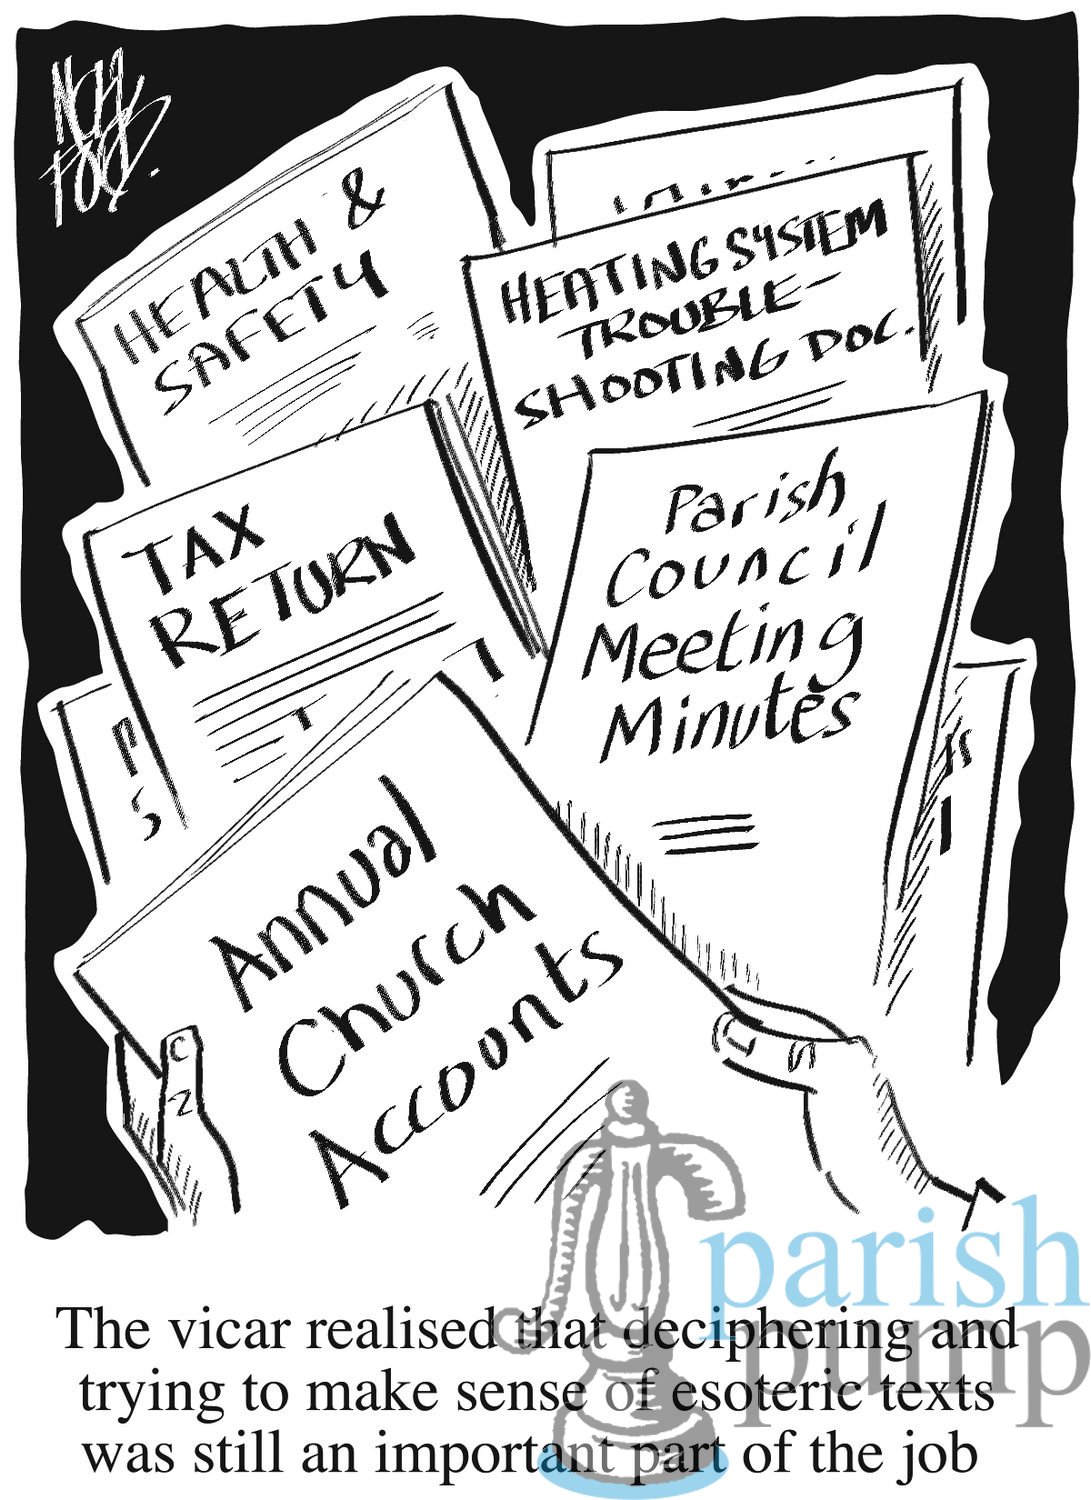 HEALTH &
SAFETY
HEATING SYSTEM
TROUBLE-
SHOOTING DOC.
TAX
RETURN
Parish
Council
Meeting
Minutes
Annual
Church
Accounts
parish
pump
The vicar realised that deciphering and
trying to make sense of esoteric texts
was still an important part of the job